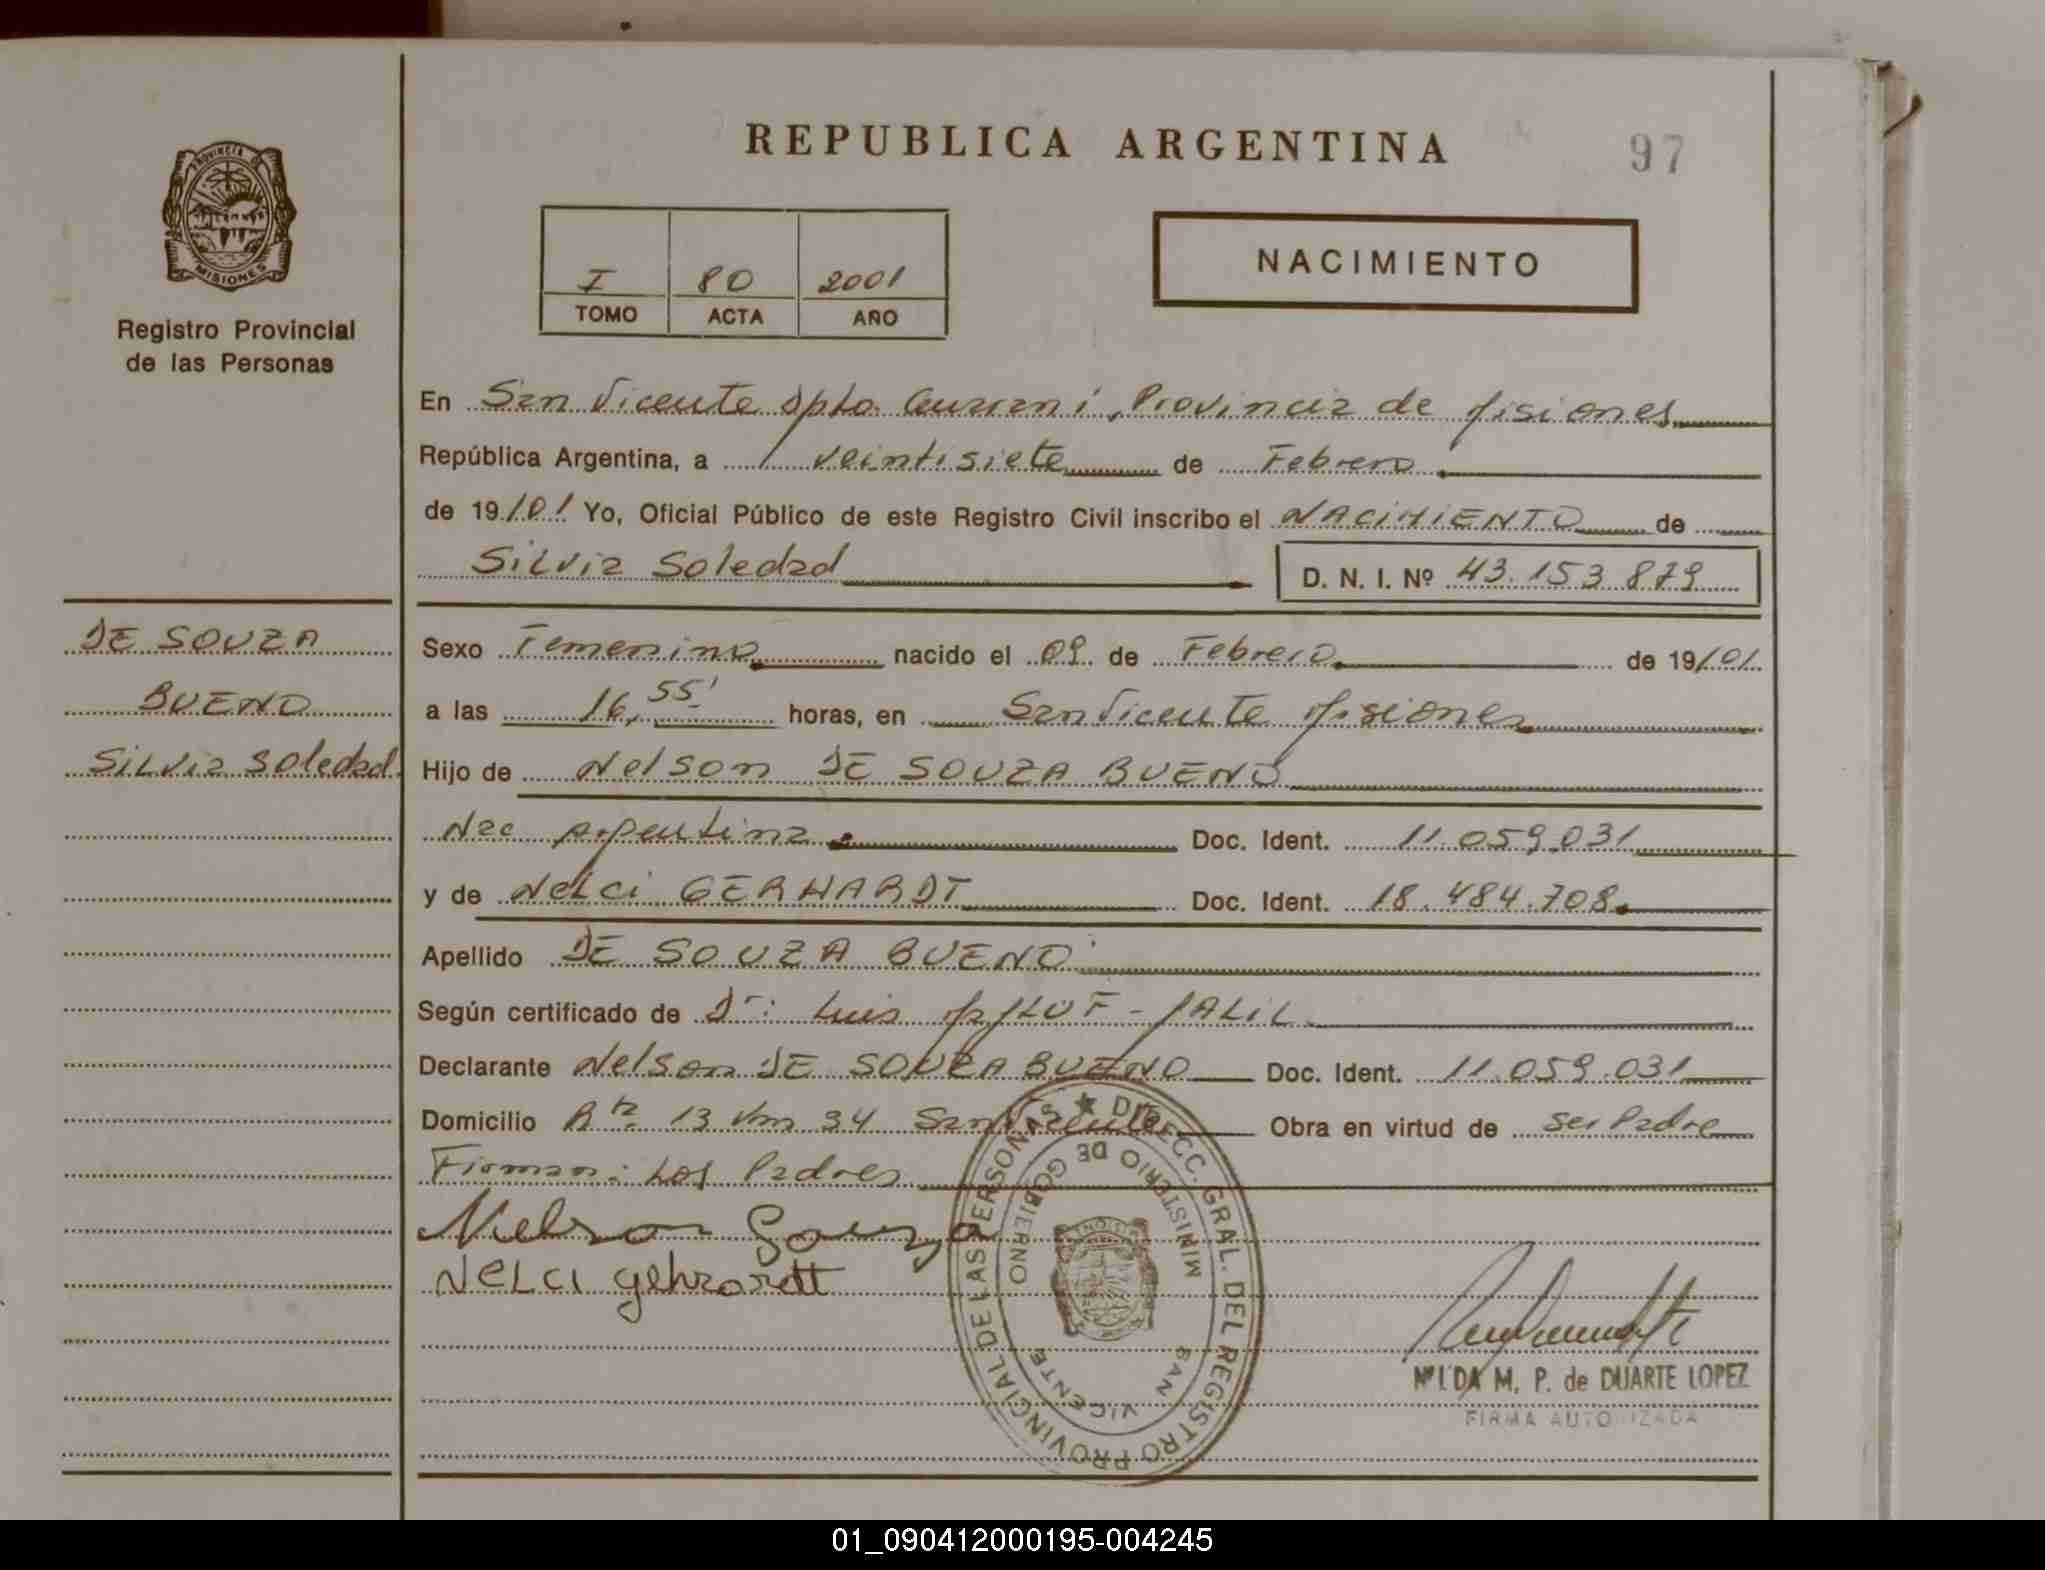 REPUBLICA ARGENTINA
97
PROVINCIA DE
MISIONES
Registro Provincial
de las Personas
I 80 2001
TOMO ACTA AÑO
NACIMIENTO
En San Vicente Dpto. Guarani, Provincia de Misiones
República Argentina, a veintisiete de Febrero
de 19/01 Yo, Oficial Público de este Registro Civil inscribo el NACIMIENTO de
Silvia Soledad
D. N. I. Nº 43.153 879
DE SOUZA
BUENO
Silvia Soledad
Sexo Femenino nacido el 09 de Febrero de 19/01
a las 16,55' horas, en San Vicente Misiones
Hijo de Nelson DE SOUZA BUENO
Nac Argentina Doc. Ident. 11.059.031
y de Nelci GERHARDT Doc. Ident. 18.484.708
Apellido DE SOUZA BUENO
Según certificado de Dr: Luis JALIL
Declarante Nelson DE SOUZA BUENO Doc. Ident. 11.059.031
Domicilio Rta. 13 Km 34 San Vicente Obra en virtud de ser Padre
Firman: Los Padres
Nelson Souza
NELCI
DIRECC. GRAL. DEL REGISTRO PROVINCIAL DE LAS PERSONAS
MINISTERIO DE GOBIERNO
SAN VICENTE
M. P. de DUARTE LOPEZ
FIRMA AUTORIZADA
01_090412000195-004245